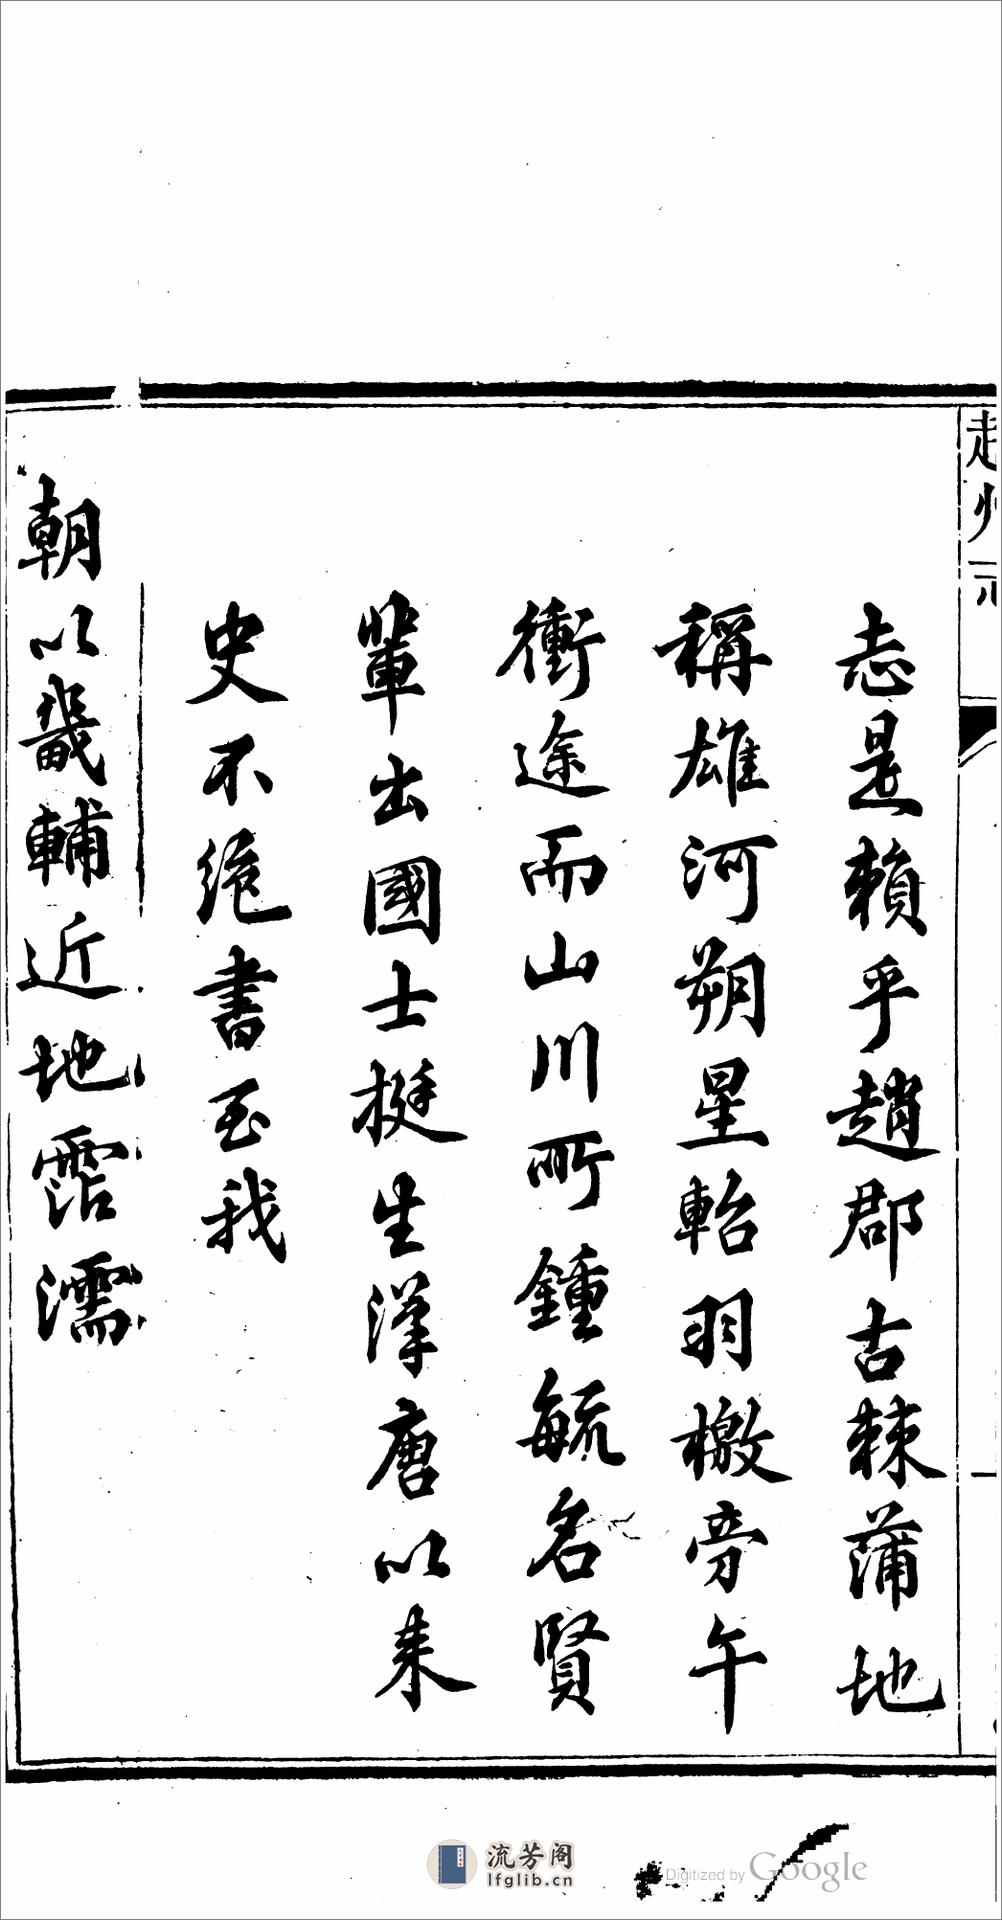 趙州
志是賴乎趙郡古棘蒲地
稱雄河朔星軺羽檄旁午
衝途而山川所鍾毓名賢
輩出國士挺生漢唐以来
史不绝書至我
朝以畿輔近地霑濡
流芳阁
lfglib.cn
Digitized by Google